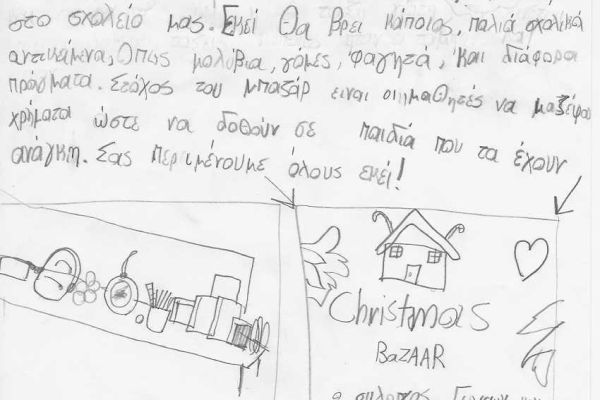 στο σχολείο μας. Εκεί θα βρει κάποιος, παλιά σχολικά
αντικείμενα, Όπως μολύβια, γόμες, φαγητά, και διάφορα
πράγματα. Στόχος του μπαζάρ ειναι οι μαθητές να μαζέψουν
χρήματα ώστε να δοθούν σε παιδιά που τα έχουν
ανάγκη. Σας περιμένουμε όλους εκεί!
Christmas
BaZAAR